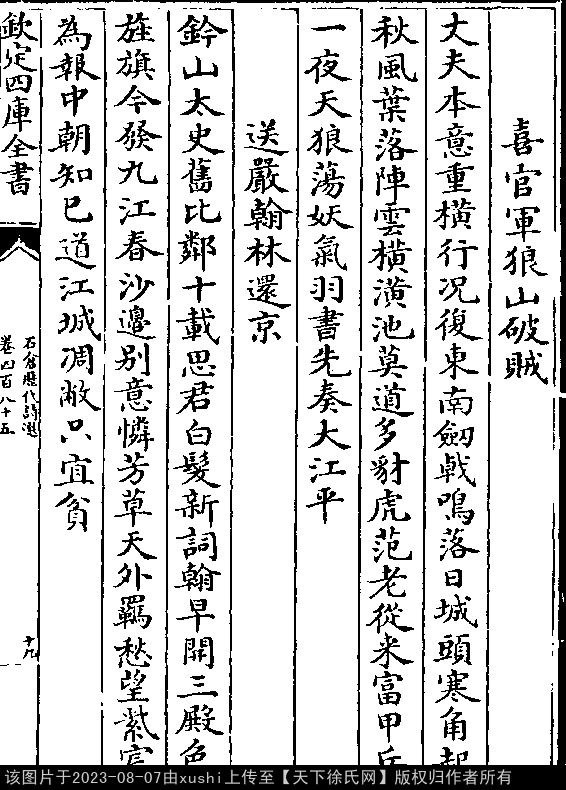 喜官軍狼山破賊
丈夫本意重橫行况復東南劔㦸鳴落日城頭寒角起
秋風葉落陣雲橫潢池莫道多豺虎范老從来富甲兵
一夜天狼蕩妖氣羽書先奏大江平
送嚴翰林還京
鈐山太史舊比鄰十載思君白髮新詞翰早開三殿色
旌旗今發九江春沙邊别意憐芳草天外羈愁望紫宸
為報中朝知已道江城凋敝只宜貧
欽定四庫全書
石倉歷代詩選
卷四百八十五
十九
该图片于2023-08-07由xushi上传至【天下徐氏网】版权归作者所有